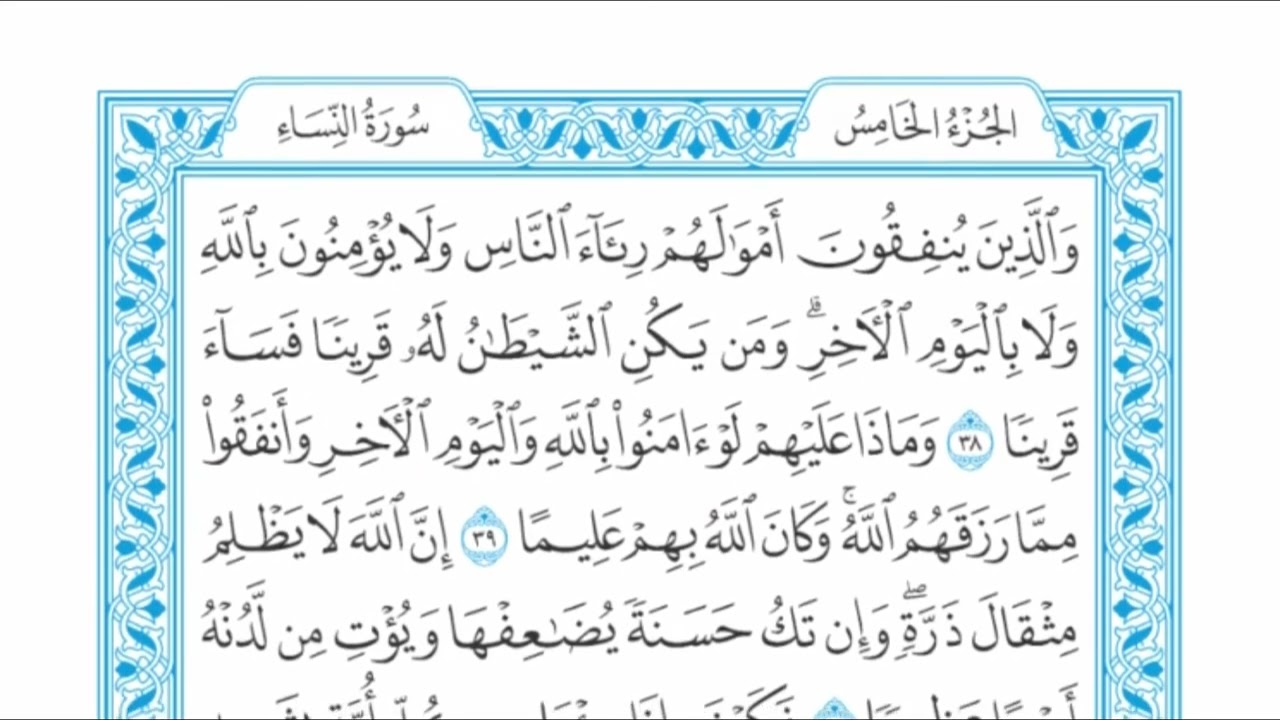 الجُزْءُ الخَامِسُ
سُورَةُ النِّسَاءِ
وَٱلَّذِينَ يُنفِقُونَ أَمْوَٰلَهُمْ رِئَآءَ ٱلنَّاسِ وَلَا يُؤْمِنُونَ بِٱللَّهِ
وَلَا بِٱلْيَوْمِ ٱلْـَٔاخِرِۗ وَمَن يَكُنِ ٱلشَّيْطَـٰنُ لَهُۥ قَرِينًا فَسَآءَ
قَرِينًا ٣٨ وَمَاذَا عَلَيْهِمْ لَوْ ءَامَنُوا۟ بِٱللَّهِ وَٱلْيَوْمِ ٱلْـَٔاخِرِ وَأَنفَقُوا۟
مِمَّا رَزَقَهُمُ ٱللَّهُۚ وَكَانَ ٱللَّهُ بِهِمْ عَلِيمًا ٣٩ إِنَّ ٱللَّهَ لَا يَظْلِمُ
مِثْقَالَ ذَرَّةٍۖ وَإِن تَكُ حَسَنَةً يُضَـٰعِفْهَا وَيُؤْتِ مِن لَّدُنْهُ